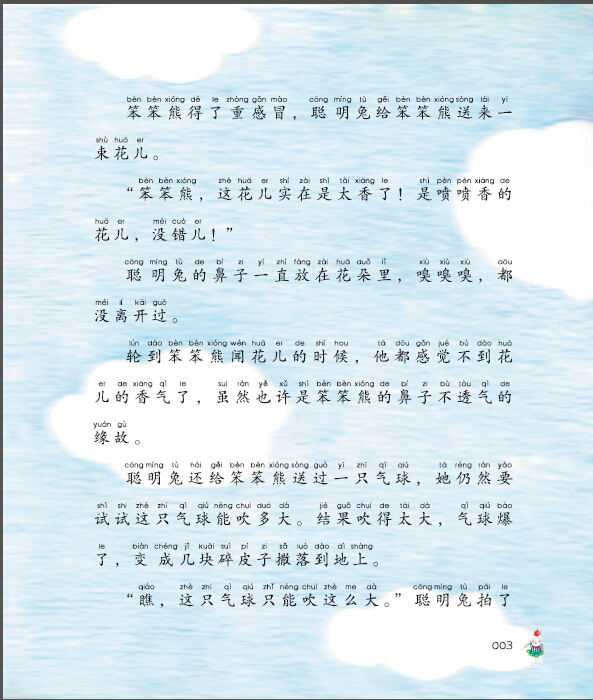 bèn bèn xióng dé le zhòng gǎn mào cōng míng tù gěi bèn bèn xióng sòng lái yí
笨笨熊得了重感冒，聪明兔给笨笨熊送来一
shù huā er
束花儿。
bèn bèn xióng zhè huā er shí zài shì tài xiāng le shì pēn pēn xiāng de
“笨笨熊，这花儿实在是太香了！是喷喷香的
huā er méi cuò er
花儿，没错儿！”
cōng míng tù de bí zi yì zhí fàng zài huā duǒ lǐ xiù xiù xiù dōu
聪明兔的鼻子一直放在花朵里，嗅嗅嗅，都
méi lí kāi guò
没离开过。
lún dào bèn bèn xióng wén huā er de shí hou tā dōu gǎn jué bú dào huā
轮到笨笨熊闻花儿的时候，他都感觉不到花
er de xiāng qì le suī rán yě xǔ shì bèn bèn xióng de bí zi bú tòu qì de
儿的香气了，虽然也许是笨笨熊的鼻子不透气的
yuán gù
缘故。
cōng míng tù hái gěi bèn bèn xióng sòng guò yì zhī qì qiú tā réng rán yào
聪明兔还给笨笨熊送过一只气球，她仍然要
shì shi zhè zhī qì qiú néng chuī duō dà jié guǒ chuī de tài dà qì qiú bào
试试这只气球能吹多大。结果吹得太大，气球爆
le biàn chéng jǐ kuài suì pí zi sǎ luò dào dì shàng
了，变成几块碎皮子撒落到地上。
qiáo zhè zhī qì qiú zhǐ néng chuī zhè me dà cōng míng tù pāi le
“瞧，这只气球只能吹这么大。”聪明兔拍了
003